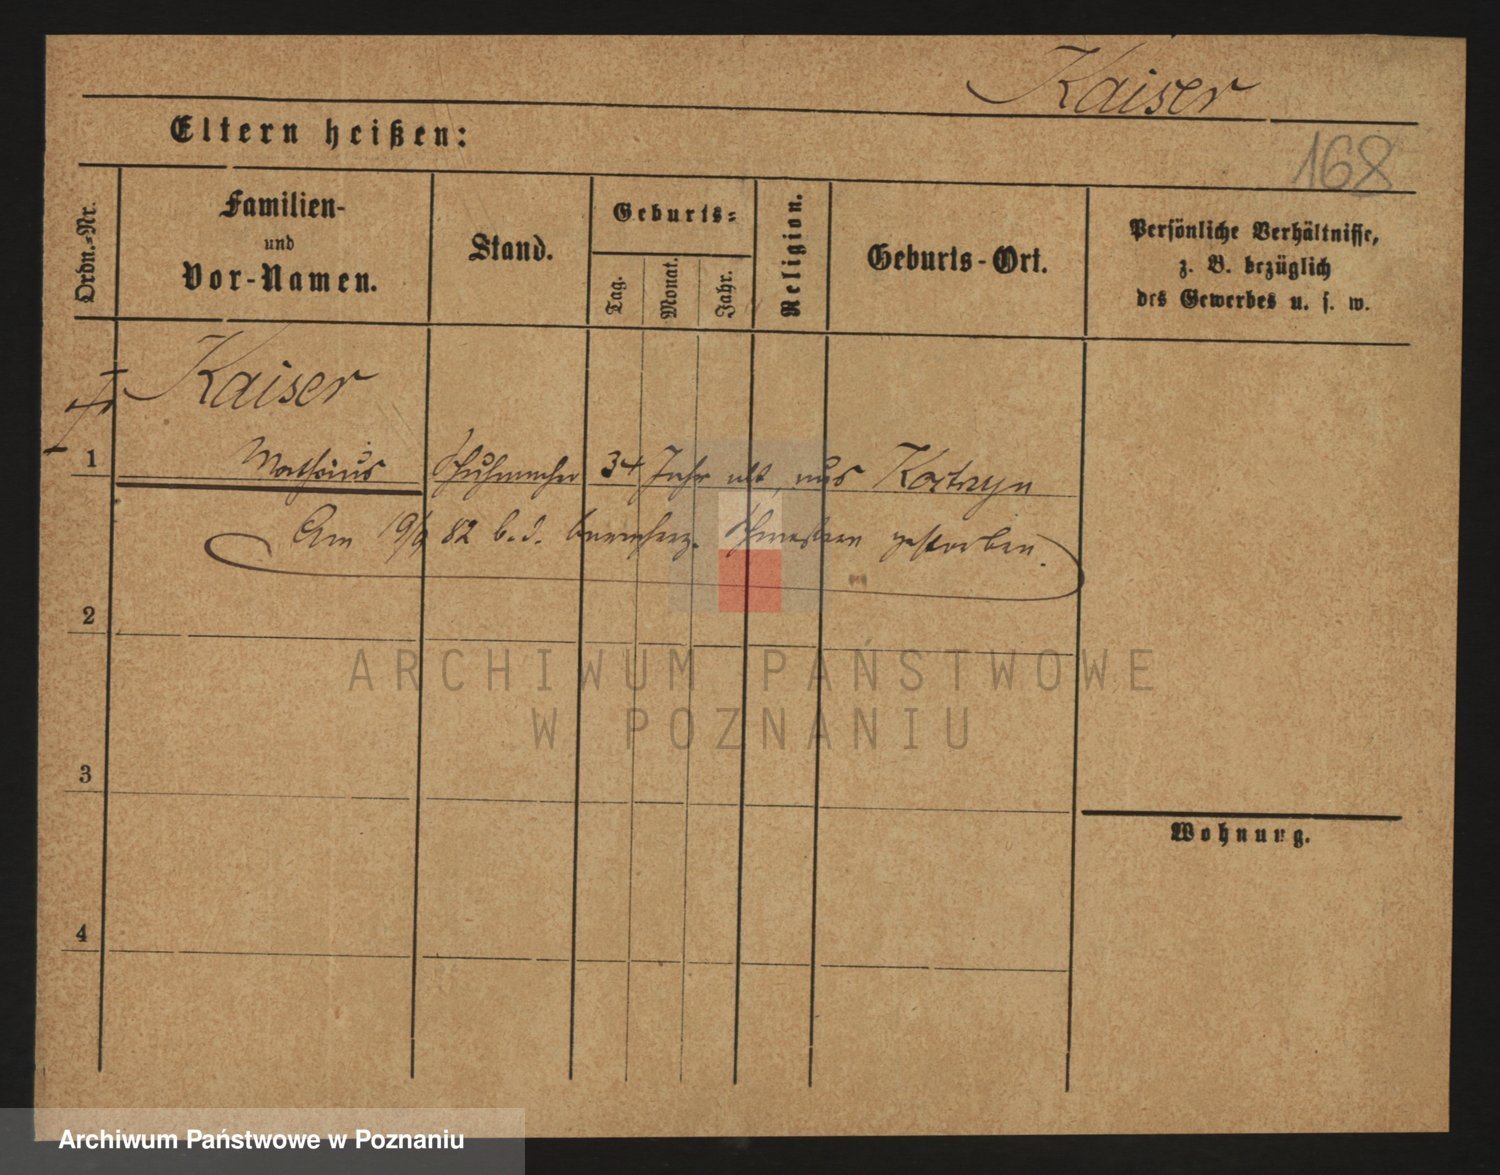 Kaiser
168
Eltern heißen:
Ordn.-Nr.
Familien-
und
Vor-Namen.
Stand.
Geburts-
Tag.
Monat.
Jahr.
Religion.
Geburts-Ort.
Persönliche Verhältnisse,
z. B. bezüglich
des Gewerbes u. s. w.
Kaiser
1 Mathäus Schuhmacher 34 Jahr alt, aus
Am 19/9 82 b. d. barmherz. Schwestern gestorben.
2
3
4
Wohnung.
ARCHIWUM PAŃSTWOWE
W POZNANIU
Archiwum Państwowe w Poznaniu